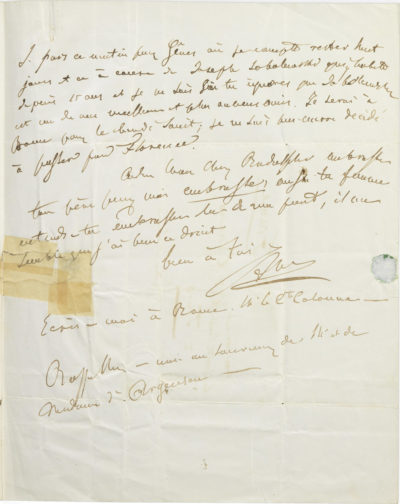 Je pars ce matin pour Gènes où je compte rester huit
jours et ce à cause de Joseph Sobolewski que j'habite
depuis 15 ans et je ne sais si tu ignores que
est un de mes meilleurs et plus anciens amis. Je serai à
Rome pour le lundi saint, je ne suis pas encore décidé
à passer par Florence.
Adieu mon cher Rodolphe embrasse
ton père pour moi embrasse aussi ta femme
entends-tu embrasse la de ma part, il me
semble que j'ai bien ce droit
bien à toi
Ecris-moi à Rome. M. le Cte Colonna
Rappelle-moi au souvenir de M et de
Madame d'Argenson